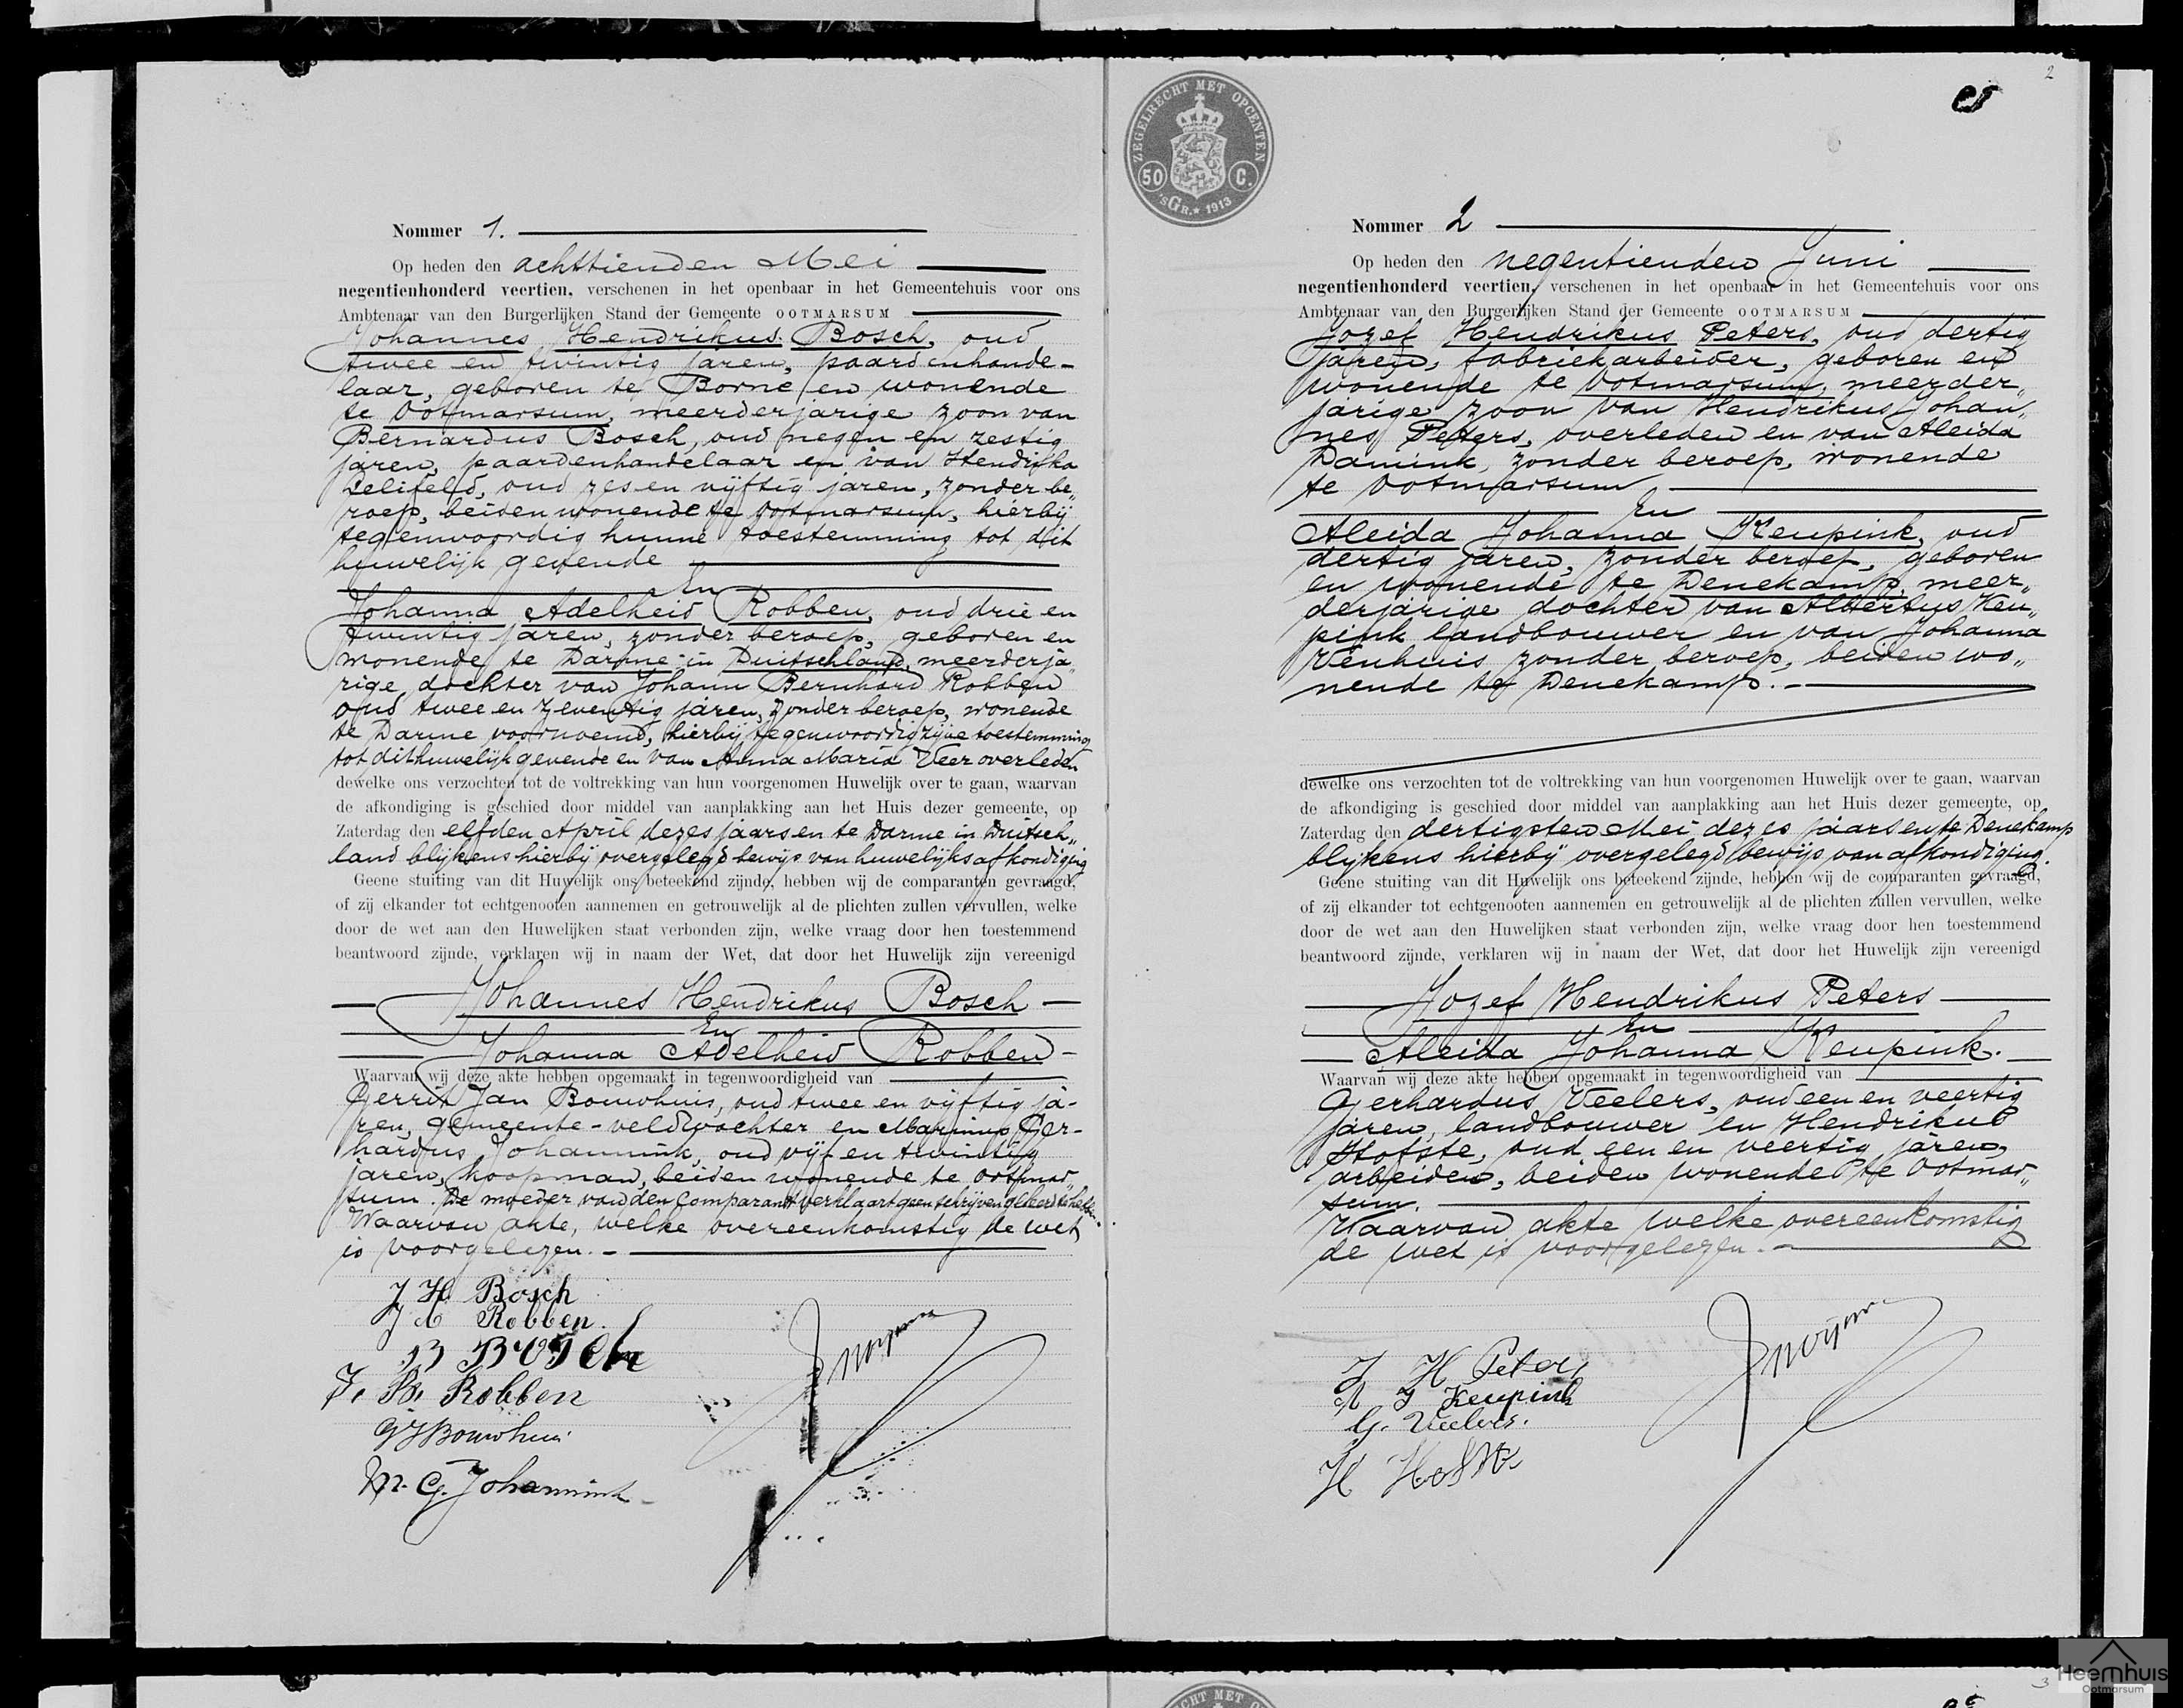 Nommer 1.
Op heden den achttienden Mei
negentienhonderd veertien, verschenen in het openbaar in het Gemeentehuis voor ons
Ambtenaar van den Burgerlijken Stand der Gemeente OOTMARSUM
Johannes Hendrikus Bosch, oud
twee en twintig jaren, paardenhande-
laar, geboren te Borne en wonende
te Ootmarsum, meerderjarige zoon van
Bernardus Bosch, oud negen en zestig
jaren, paardenhandelaar en van Hendrika
oud zes en vijftig jaren, zonder be„
roep, beiden wonende te Ootmarsum, hierbij
tegenwoordig hunne toestemming tot dit
huwelijk gevende
En
Johanna Adelheid Robben, oud drie en
twintig jaren, zonder beroep, geboren en
wonende te Darme in Duitschland, meerderja„
rige dochter van Johann Bernhard Robben
oud twee en zeventig jaren, zonder beroep, wonende
te Darme voornoemd, hierbij tegenwoordig zijne toestemming
tot dit huwelijk gevende en van Anna Maria Veer overleden
dewelke ons verzochten tot de voltrekking van hun voorgenomen Huwelijk over te gaan, waarvan
de afkondiging is geschied door middel van aanplakking aan het Huis dezer gemeente, op
Zaterdag den elfden April dezes jaars en te Darme in Duitsch„
land blijkens hierbij overgelegd bewijs van huwelijksafkondiging
Geene stuiting van dit Huwelijk ons beteekend zijnde, hebben wij de comparanten gevraagd,
of zij elkander tot echtgenooten aannemen en getrouwelijk al de plichten zullen vervullen, welke
door de wet aan den Huwelijken staat verbonden zijn, welke vraag door hen toestemmend
beantwoord zijnde, verklaren wij in naam der Wet, dat door het Huwelijk zijn vereenigd
Johannes Hendrikus Bosch
En
Johanna Adelheid Robben
Waarvan wij deze akte hebben opgemaakt in tegenwoordigheid van
Gerrit Jan Bouwhuis, oud twee en vijftig ja-
ren, gemeente-veldwachter en Marinus Ger-
hardus Johannink, oud vijf en twintig
jaren, koopman, beiden wonende te Ootmar„
sum. De moeder van den Comparant verklaart geen schrijven geleerd te hebben.
Waarvan akte, welke overeenkomstig de wet
is voorgelezen.
J H Bosch
J A Robben
B BOSch
J. B. Robben
GJBouwhuis
M. G. Johannink
ZEGELRECHT MET OPCENTEN
50 C.
'sGR.★ 1913
2
Nommer 2
Op heden den negentienden Juni
negentienhonderd veertien, verschenen in het openbaar in het Gemeentehuis voor ons
Ambtenaar van den Burgerlijken Stand der Gemeente OOTMARSUM
Jozef Hendrikus Peters, oud dertig
jaren, fabriekarbeider, geboren en
wonende te Ootmarsum, meerder„
jarige zoon van Hendrikus Johan„
nes Peters, overleden en van Aleida
Damink, zonder beroep, wonende
te Ootmarsum
En
Aleida Johanna Keupink, oud
dertig jaren, zonder beroep, geboren
en wonende te Denekamp, meer„
derjarige dochter van Albertus Keu„
pink landbouwer en van Johanna
Venhuis zonder beroep, beiden wo„
nende te Denekamp.
dewelke ons verzochten tot de voltrekking van hun voorgenomen Huwelijk over te gaan, waarvan
de afkondiging is geschied door middel van aanplakking aan het Huis dezer gemeente, op
Zaterdag den dertigsten Mei dezes jaars en te Denekamp
blijkens hierbij overgelegd bewijs van afkondiging.
Geene stuiting van dit Huwelijk ons beteekend zijnde, hebben wij de comparanten gevraagd,
of zij elkander tot echtgenooten aannemen en getrouwelijk al de plichten zullen vervullen, welke
door de wet aan den Huwelijken staat verbonden zijn, welke vraag door hen toestemmend
beantwoord zijnde, verklaren wij in naam der Wet, dat door het Huwelijk zijn vereenigd
Jozef Hendrikus Peters
En
Aleida Johanna Keupink.
Waarvan wij deze akte hebben opgemaakt in tegenwoordigheid van
Gerhardus Veelers, oud een en veertig
jaren, landbouwer en Hendrikus
Hofste, oud een en veertig jaren,
arbeider, beiden wonende te Ootmar„
sum.
Waarvan akte welke overeenkomstig
de wet is voorgelezen.
J H Peters
A J Keupink
G. Veelers.
H Hofste
3
Heemhuis
Ootmarsum